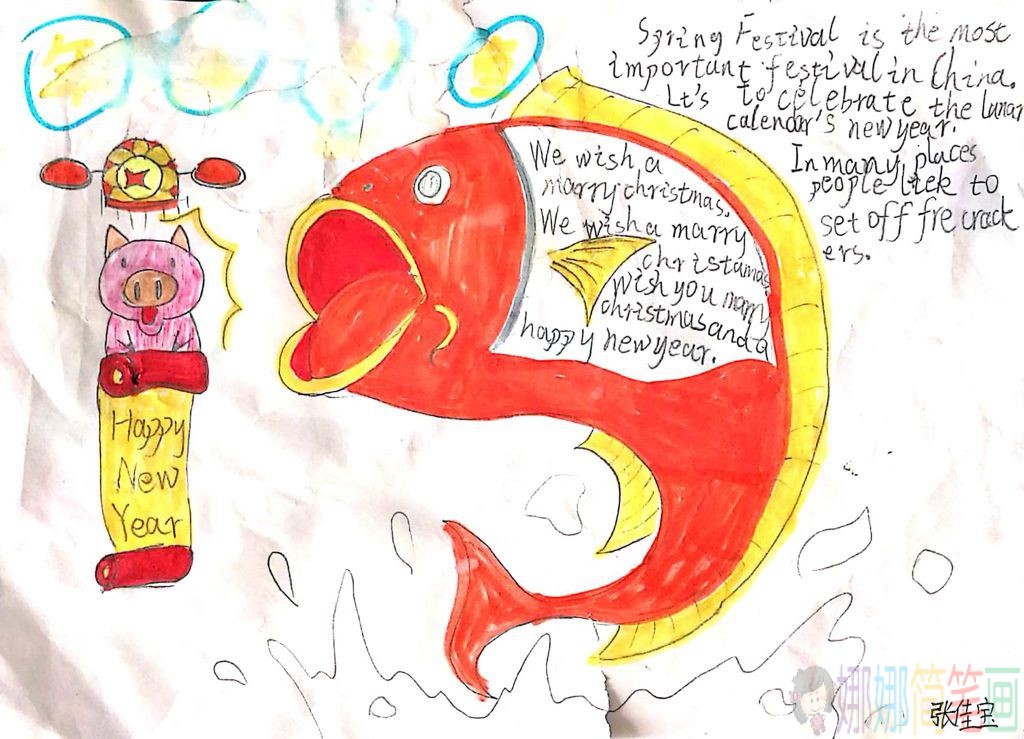 Spring Festival is the most
important festival in China.
Lt's to celebrate the lunar
calendar's new year.
In many places
people liek to
set off fire crack
ers.
We wish a
marry christmas.
We wish a marry
christamas
Wish you marry
christmas and a
happy new year.
Happy
New
Year
娜娜简笔画
张佳宝